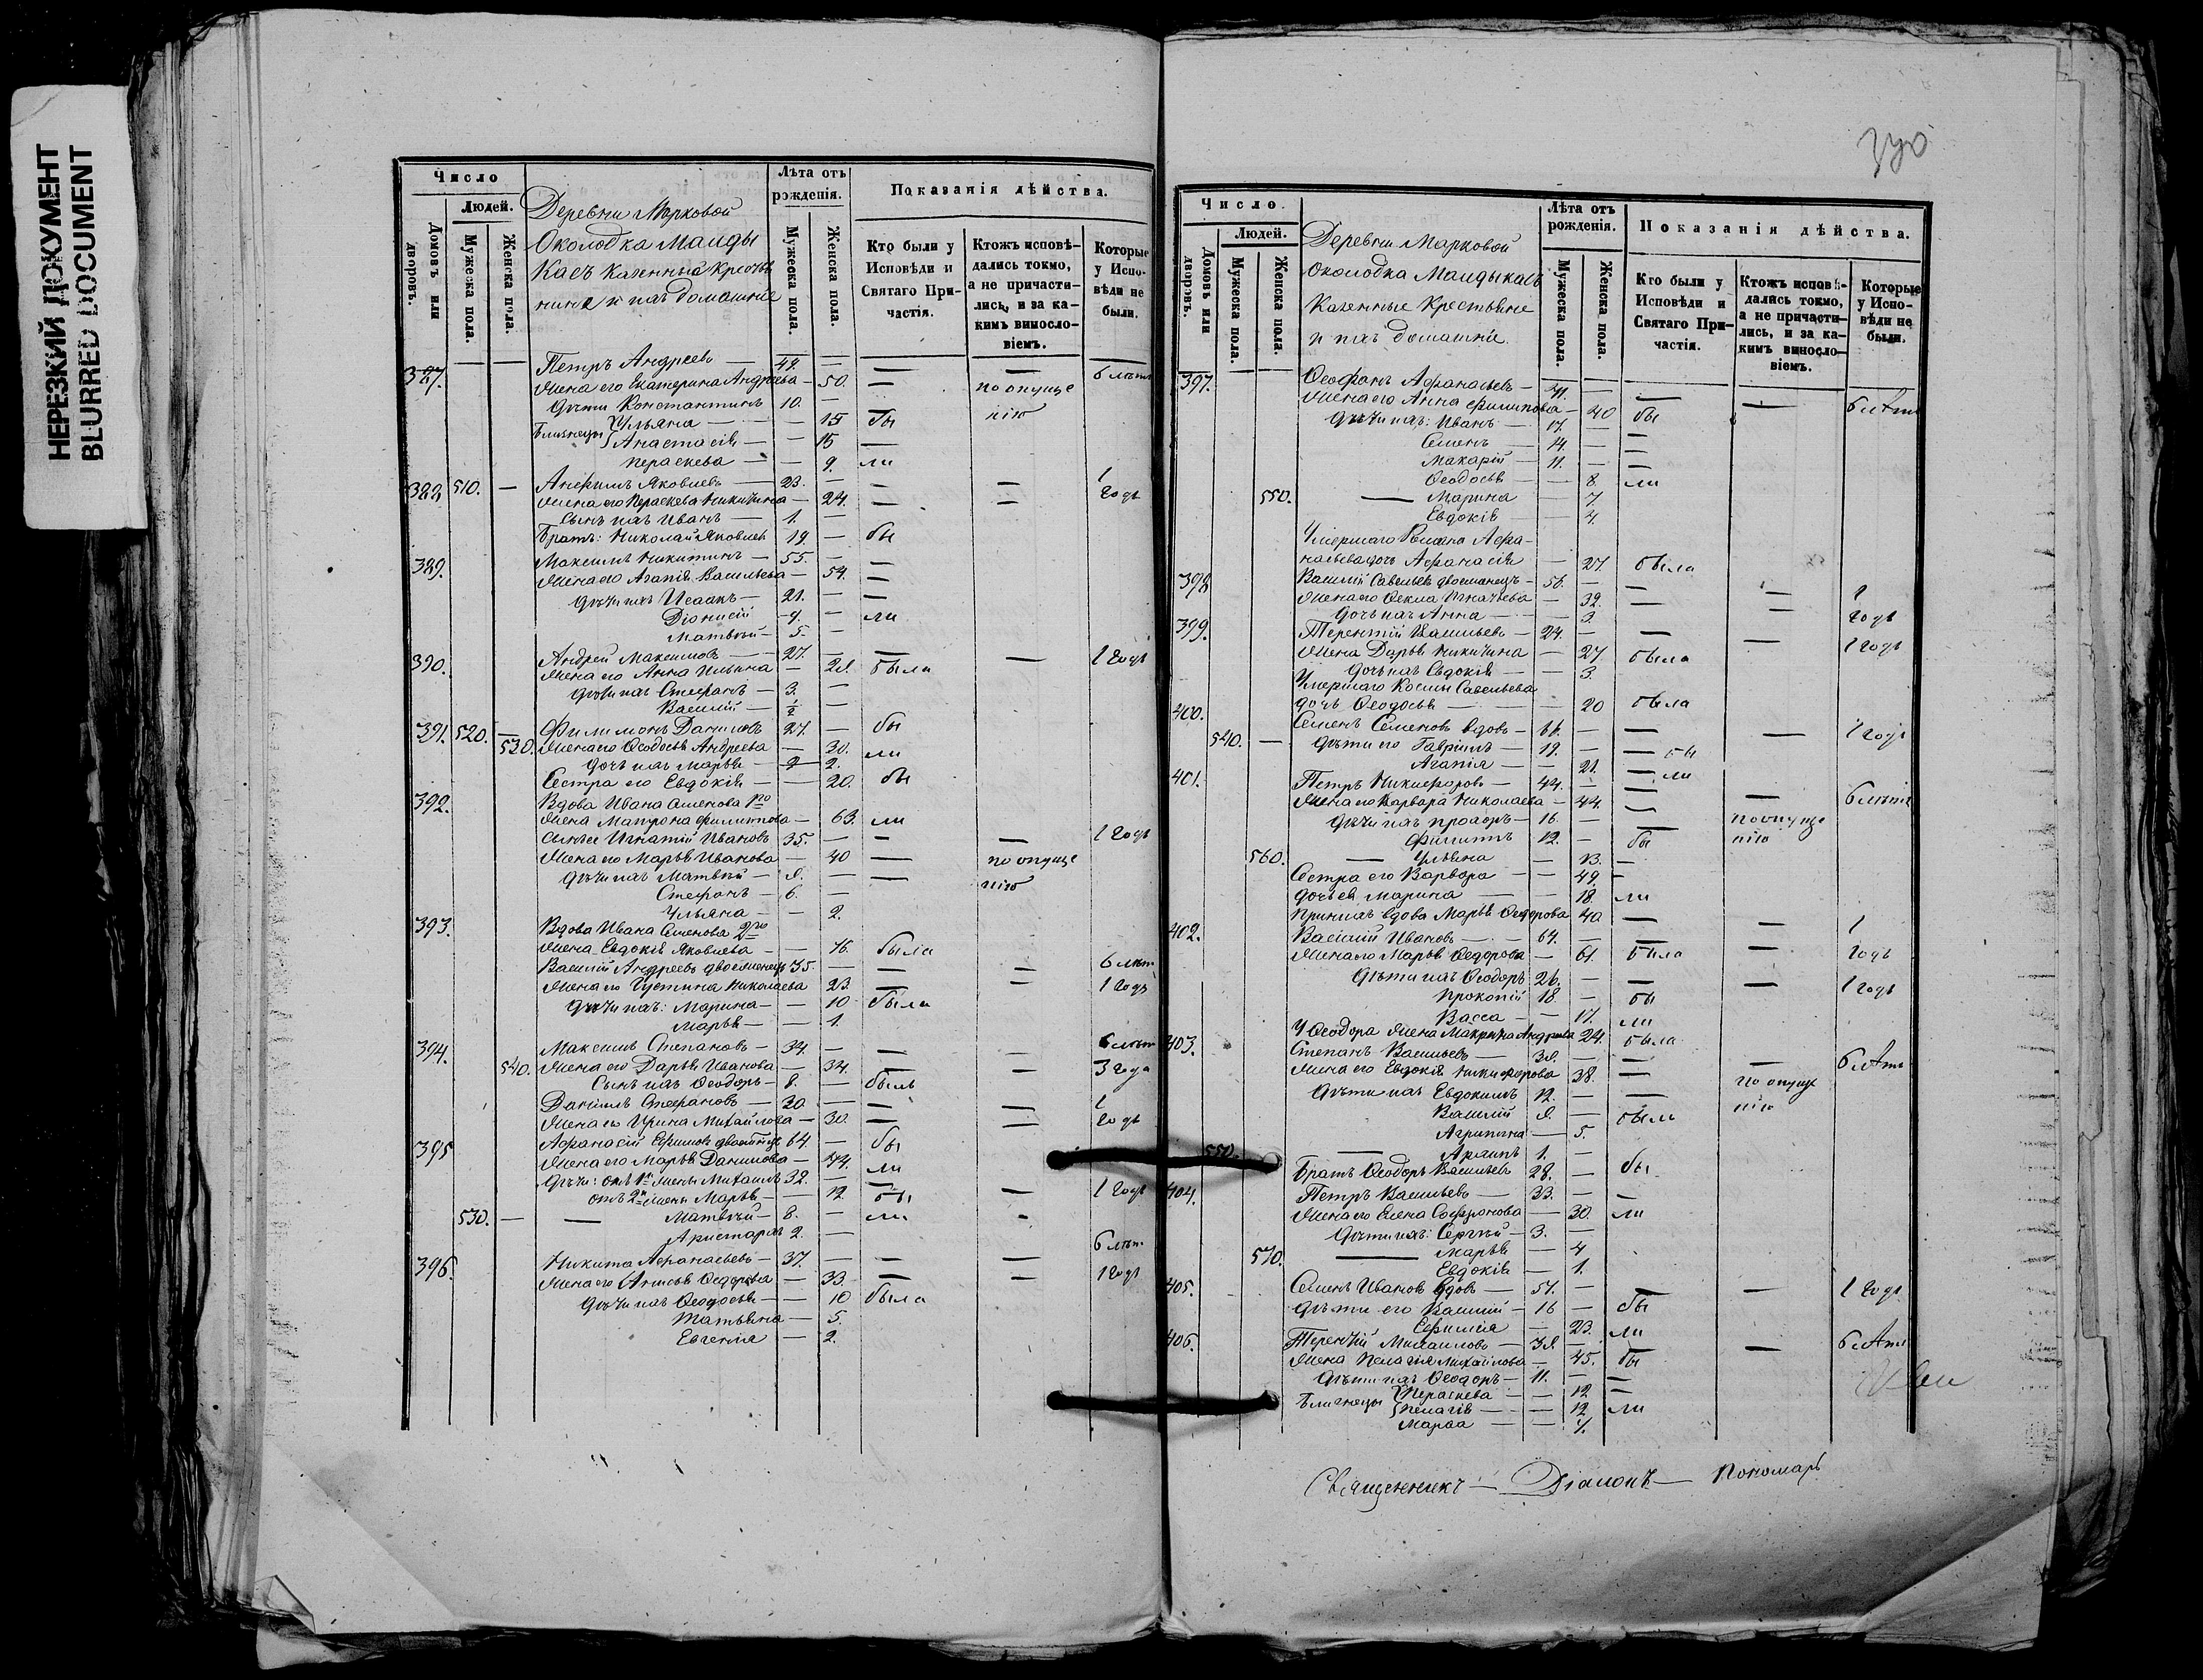 НЕРЕЗКИЙ ДОКУМЕНТ
BLURRED DOCUMENT
Число
Людей.
Домовъ или дворовъ.
Мужеска пола.
Женска пола.
Деревни Марковой
Околодка Манды
касъ казенный крестья
нине и ихъ домашніе
Лѣта отъ рожденія.
Мужеска пола.
Женска пола.
Показанія дѣйства.
Кто были у Исповѣди и Святаго Причастія.
Ктожъ исповѣдались токмо, а не причастились, и за какимъ винословіемъ.
Которые у Исповѣди не были.
387. Петръ Андреевъ — 49. — — — 6 лѣтъ
Жена его Екатерина Андреева — 50. — по опуще
Дѣти Константинъ 10. — нію
Близнецы Ульяна — — 15 бы
Анастасія — — 15 —
Пераскева — — 9. ли
388. 510. — Анфимъ Яковлевъ — 23. — — — 1
Жена его Пераскева Никитина — 24. — — годъ
Сынъ ихъ Иванъ — 1. —
Братъ: Николай Яковлев 19. — бы
389. Максимъ Никитинъ — 55. — —
Жена его Агапія Васильева — 54. —
Дѣти ихъ Исаакъ — 21. — —
Діонисій 9. — ли
Матвѣй — 5. —
390. Андрей Максимовъ — 27. — — — 1 годъ
Жена его Анна Ильина — 28. была
Дѣти ихъ Стефанъ — 3. —
Василій — 1/2 —
391. 520. — Филимонъ Даниловъ 27. — бы
530. Жена его Ѳеодосья Андреева — 30. ли
Дочь ихъ Марья — 2.
Сестра его Евдокія — — 20. бы
392. Вдова Ивана Семенова 1го
Жена Матрона Филиппова — 63. ли
Сынъ ея Игнатій Ивановъ 35. — — — 1 годъ
Жена его Марья Иванова — 40 — по опуще
Дѣти ихъ Матвѣй — 8. — — нію
Стефанъ — 6. —
Ульяна — — 2.
393. Вдова Ивана Семенова 2го
Жена Евдокія Яковлева — 76. была
Василій Андреевъ двоеженецъ 35. — — — 6 лѣтъ
Жена его Устина Николаева 23. — — 1 годъ
Дѣти ихъ: Марина — — 10 была
Марья — — 1.
394. Максимъ Степановъ — 34. — — — 6 лѣтъ
540. Жена его Дарья Иванова — 34. — — 3 года
Сынъ ихъ Ѳеодоръ — 8. — былъ
Даніилъ Стефановъ — 30 — — — 1
Жена его Ирина Михайлова — 30. — — годъ
395 Афанасій Ефимовъ 64. — бы
Жена его Марья Данилова — 44. ли
Дѣти: отъ 1й жены Михаилъ 32. — —
отъ 2й жены Марья — — 12 бы — 1 годъ
530. — — Матвѣй — 8. — ли
Аристархъ 2. —
396. Никита Афанасьевъ — 37. — — — 6 лѣтъ
Жена его Анисья Ѳедорова — 33. — — 1 годъ
Дѣти ихъ Ѳеодосья — — 10 была
Татьяна — 5.
Евгенія — 2.
Число.
Людей.
Домовъ или дворовъ.
Мужеска пола.
Женска пола.
Деревни Марковой
околодка Мандыкасъ
Казенные Крестьяне
и ихъ домашніе.
Лѣта отъ рожденія.
Мужеска пола.
Женска пола.
Показанія дѣйства.
Кто были у Исповѣди и Святаго Причастія.
Ктожъ исповѣдались токмо, а не причастились, и за какимъ винословіемъ.
Которые у Исповѣди не были.
397. Ѳеофанъ Афанасьевъ — 41. — — — 6 лѣтъ
Жена его Анна Филипова — 40 бы
Дѣти ихъ: Иванъ — 17. — —
Семенъ — 14. — —
Макарій — 11. — —
Ѳеодосья — — 8. ли
550. — Марина — 7.
Евдокія — 4.
Умершаго Афа-
насьева дочь Афанасія — 27. была
398 Василій Савельевъ двоеженецъ — 56. — — — 1
Жена его Ѳекла Игнатьева — 32. — — годъ
Дочь ихъ Анна — — 3.
399. Терентій Васильевъ — 24. — — — 1 годъ
Жена Дарья Никитина — 27 была
Дочь ихъ Евдокія — — 3.
Умершаго Космы Савельева
дочь Ѳеодосья — — 20 была
400. Семенъ Семеновъ вдовъ — 66. — — — 1 годъ
540. — Дѣти его Гавріилъ — 19. — — бы
Агапія — — 21. — ли
401. Петръ Никифоровъ — 44. — — — 6 лѣтъ
Жена его Варвара Николаева — 44. —
Дѣти ихъ Прохоръ — 16. — — по опуще
Филиппъ 12. — бы нію
560. — Ульяна — 13. —
Сестра его Варвара — — 49. —
дочь ея Марина — 18. ли
При нихъ вдова Марья Ѳедорова 40 —
402. Василій Ивановъ — 64. — — — 1
Жена его Марья Ѳедорова — 61. была — годъ
Дѣти ихъ Ѳеодоръ 26. — — — 1 годъ
Прокопій 18. — бы
Васса — — 17. ли
У Ѳеодора жена Макрина Андреева 24. была
403. Степанъ Васильевъ — 38. — — — 6 лѣтъ
Жена его Евдокія Никифорова 38. —
Дѣти ихъ Евдокимъ 12. — — по опуще
Василій 8. — былъ нію
Агрипина — 5.
550. — Архипъ 1. —
Братъ Ѳеодоръ Васильевъ 28. — бы
404. Петръ Васильевъ — 33. — —
Жена его Елена Софронова — 30. ли
Дѣти ихъ: Сергѣй — 3. —
570. — Марья — 4
Евдокія — 1.
405. Семенъ Ивановъ вдовъ — 57. — — — 1 годъ
Дѣти его Василій — 16 — бы
Ефимія — 23. ли
406. Терентій Михайловъ — 38. — — — 6 лѣтъ
Жена Пелагія Михайлова — 45. бы
Дѣти ихъ Ѳеодоръ — 11. — —
Близнецы Пераскева — — 12 —
Пелагія — — 12 ли
Марѳа — — 7.
Священникъ — Діаконъ — Пономарь